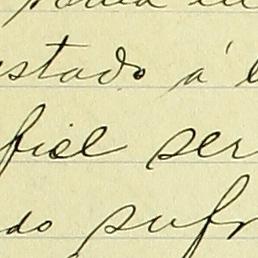 estado á l
fiel ser
do sufr